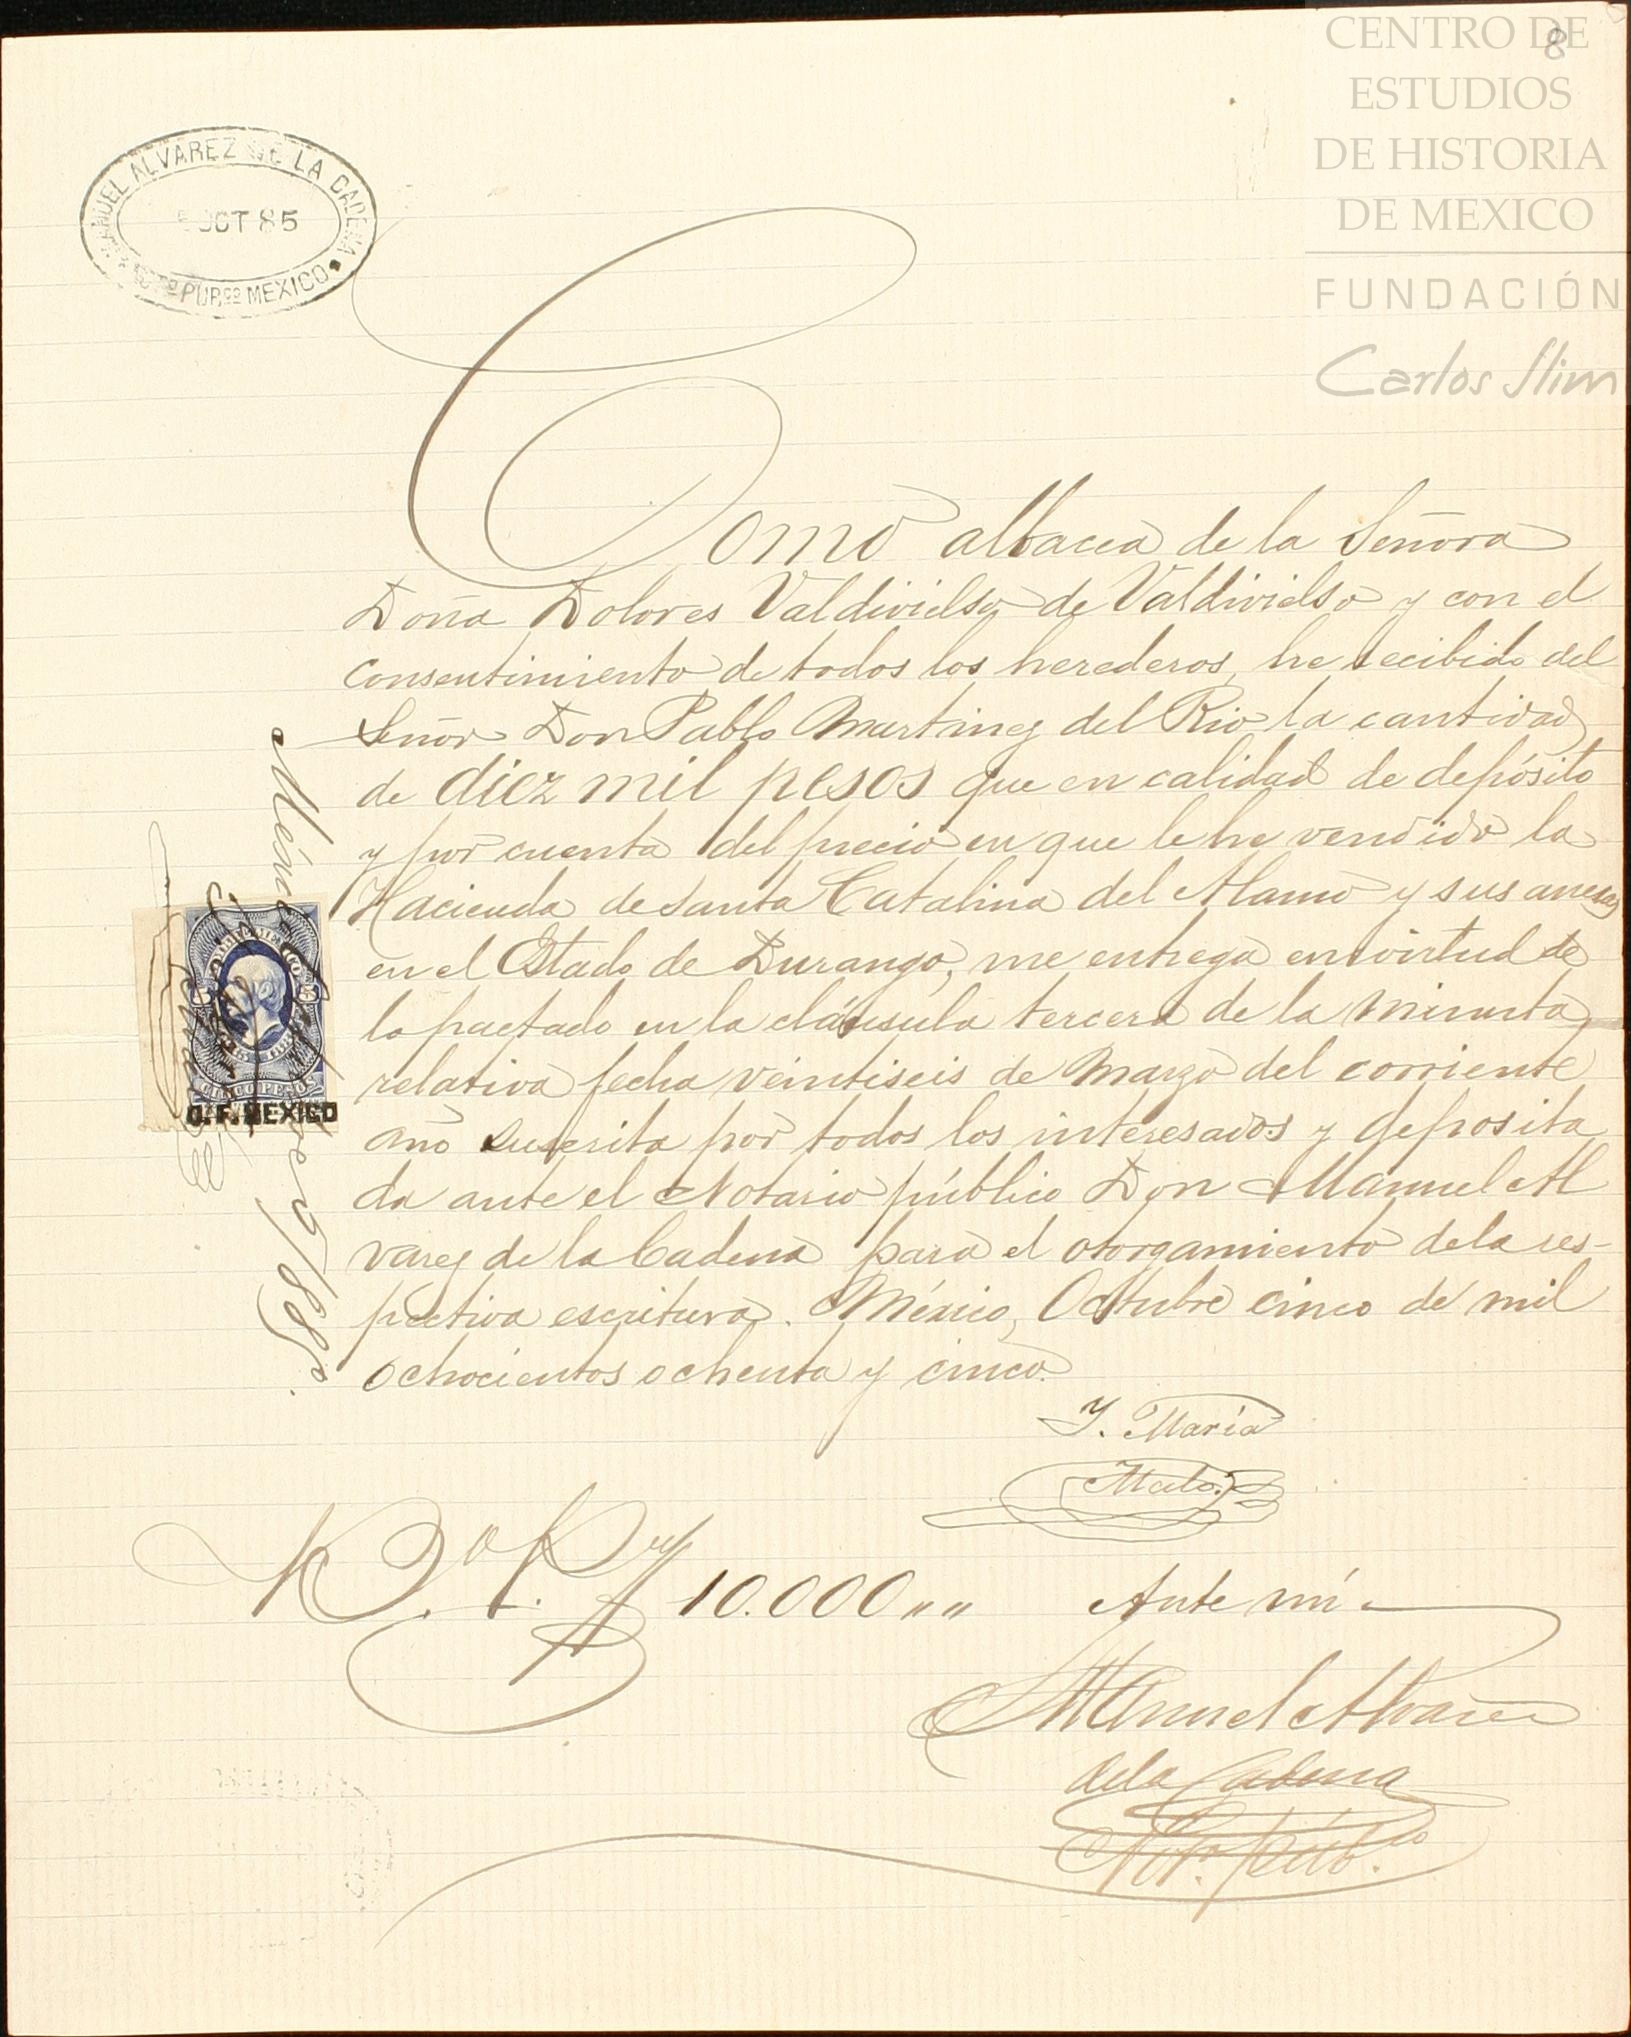 CENTRO DE
ESTUDIOS
DE HISTORIA
DE MEXICO
FUNDACIÓN
Carlos Slim
8
MANUEL ALVAREZ DE LA CADENA
5 OCT 85
NOTº PUBCO MEXICO
Como albacea de la Señora
Doña Dolores Valdivielso de Valdivielso y con el
consentimiento de todos los herederos, he recibido del
Señor Don Pablo Martinez del Rio la cantidad
de diez mil pesos que en calidad de depósito
y por cuenta del precio en que le he vendido la
Hacienda de Santa Catalina del Alamo y sus anexas
en el Estado de Durango, me entrega en virtud de
lo pactado en la cláusula tercera de la minuta
relativa fecha veintiseis de Marzo del corriente
año suscrita por todos los interesados y deposita
da ante el Notario público Don Manuel Al
varez de la Cadena para el otorgamiento de la res-
pectiva escritura. México, Octubre cinco de mil
ochocientos ochenta y cinco.
México 5/885.
CINCO PESOS
O. F. MEXICO
Y. María
Malo.
10.000 " "
Ante mí
Manuel Alvarez
de la Cadena
Not. púb.co